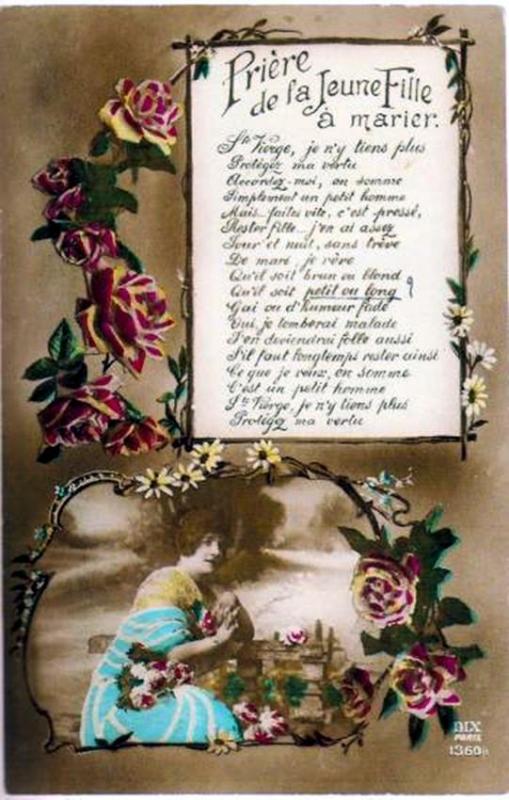 Prière
de la Jeune Fille
à marier.
Ste Vierge, je n'y tiens plus
Protégez ma vertu
Accordez-moi, en somme
Simplement un petit homme
Mais.. faites vite, c'est pressé,
Rester fille... j'en ai assez
Jour et nuit, sans trève
De mari, je rêve
Qu'il soit brun ou blond
Qu'il soit petit ou long ?
Gai ou d'humeur fade
Oui, je tomberai malade
J'en deviendrai folle aussi
S'il faut longtemps rester ainsi
Ce que je veux, en somme
C'est un petit homme
Ste Vierge, je n'y tiens plus
Protégez ma vertu
DIX
PARIS
1360